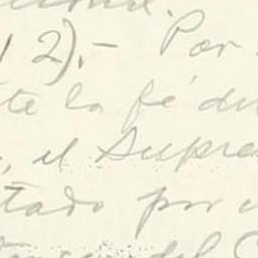 12).- Por
te la fé di
, el Supre
tado por
del